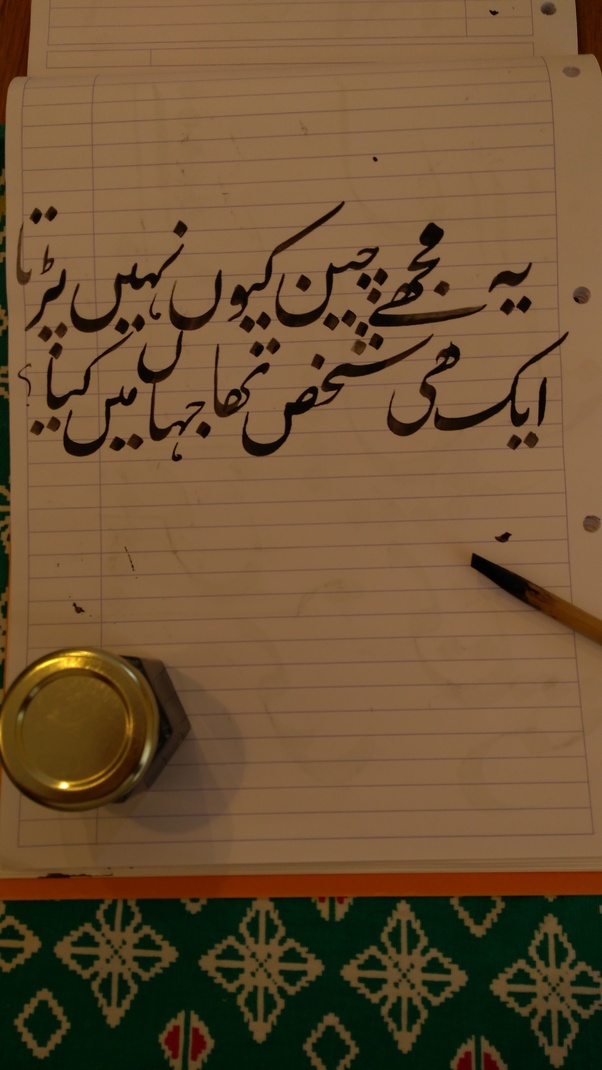 یہ مجھے چین کیوں نہیں پڑتا
ایک ھی شخص تھا جہاں میں کیا؟